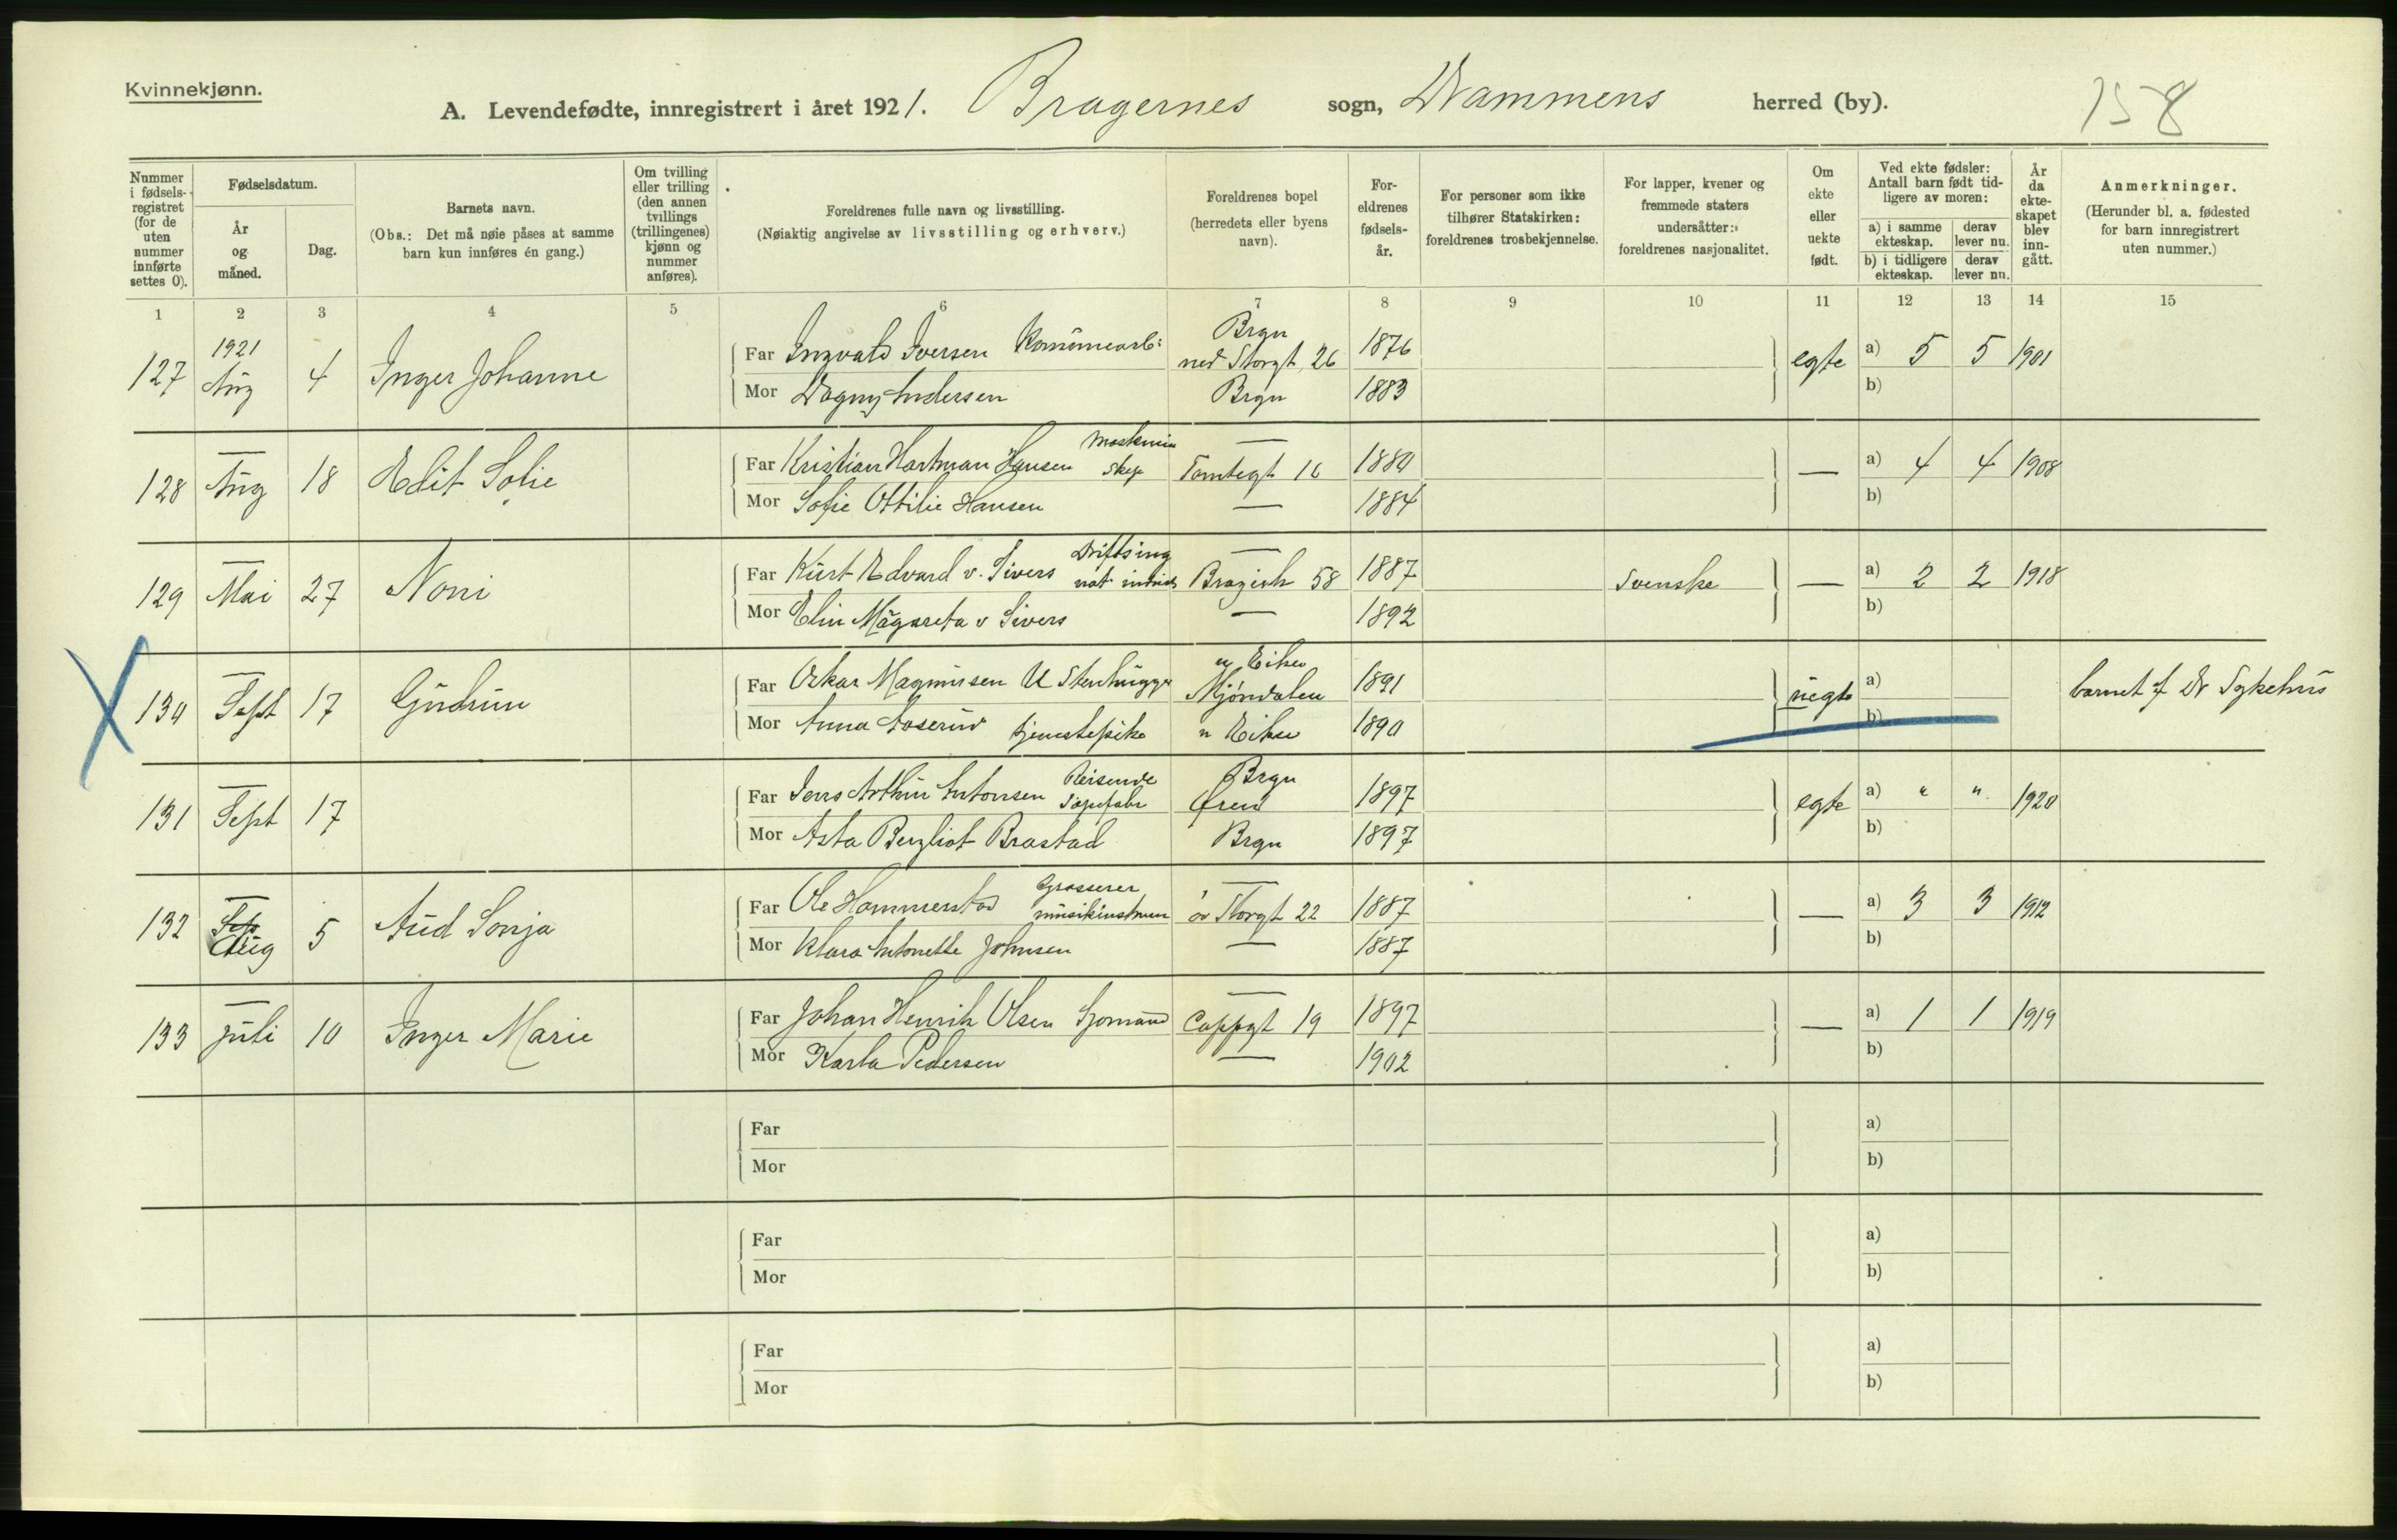 Kvinnekjønn.
A. Levendefødte, innregistrert i året 1921. Bragernes sogn, Drammens herred (by). 158
Nummer i fødselsregistret (for de uten nummer innførte settes 0).
Fødselsdatum.
År og måned.
Dag.
Barnets navn.
(Obs.: Det må nøie påses at samme barn kun innføres én gang.)
Om tvilling eller trilling (den annen tvillings (trillingenes) kjønn og nummer anføres).
Foreldrenes fulle navn og livsstilling.
(Nøiaktig angivelse av livsstilling og erhverv.)
Foreldrenes bopel (herredets eller byens navn).
Foreldrenes fødselsår.
For personer som ikke tilhører Statskirken: foreldrenes trosbekjennelse.
For lapper, kvener og fremmede staters undersåtter: foreldrenes nasjonalitet.
Om ekte eller uekte født.
Ved ekte fødsler: Antall barn født tidligere av moren:
a) i samme ekteskap. derav lever nu.
b) i tidligere ekteskap. derav lever nu.
År da ekteskapet blev inngått.
Anmerkninger.
(Herunder bl. a. fødested for barn innregistrert uten nummer.)
1 2 3 4 5 6 7 8 9 10 11 12 13 14 15
127 1921 Aug 4 Inger Johanne
Far Ingvald Iversen Brgn ned Storgt 26 1876 egte a) 5 5 1901
Mor Dagny Andersen Brgn 1883 b)
128 — Aug 18 Edit Sofie
Far Kristian Hartman Hansen — Tomtegt 16 1880 — a) 4 4 1908
Mor Sofie Ottilie Hansen — 1884 b)
129 — Mai 27 Noni
Far Kurt Edvard v. Sivers Driftsing — 58 1887 Svenske — a) 2 2 1918
Mor Elin Magareta v Sivers — 1892 b)
130 — Sept 17 Gudrun
Far Oskar Magnussen U Stenhugger n Eiker Mjøndalen 1891 uegte a) barnet f Dr Sykehus
Mor Anna Aaserud tjenestepike n Eiker 1890 b)
131 — Sept 17
Far Jens Arthur Antonsen Reisende Sæpefabr Brgn Øren 1897 egte a) " " 1920
Mor Asta Bergliot Brastad Brgn 1897 b)
132 — Sep Aug 5 Aud Sonja
Far Ole Hammerstad Grosserer musikinstrum — øv Storgt 22 1887 — a) 3 3 1912
Mor Klara Antonette Johnsen — 1887 b)
133 — juli 10 Inger Marie
Far Johan Henrik Olsen Sjømand — Cappgt 19 1897 — a) 1 1 1919
Mor Karla Pedersen — 1902 b)
Far a)
Mor b)
Far a)
Mor b)
Far a)
Mor b)